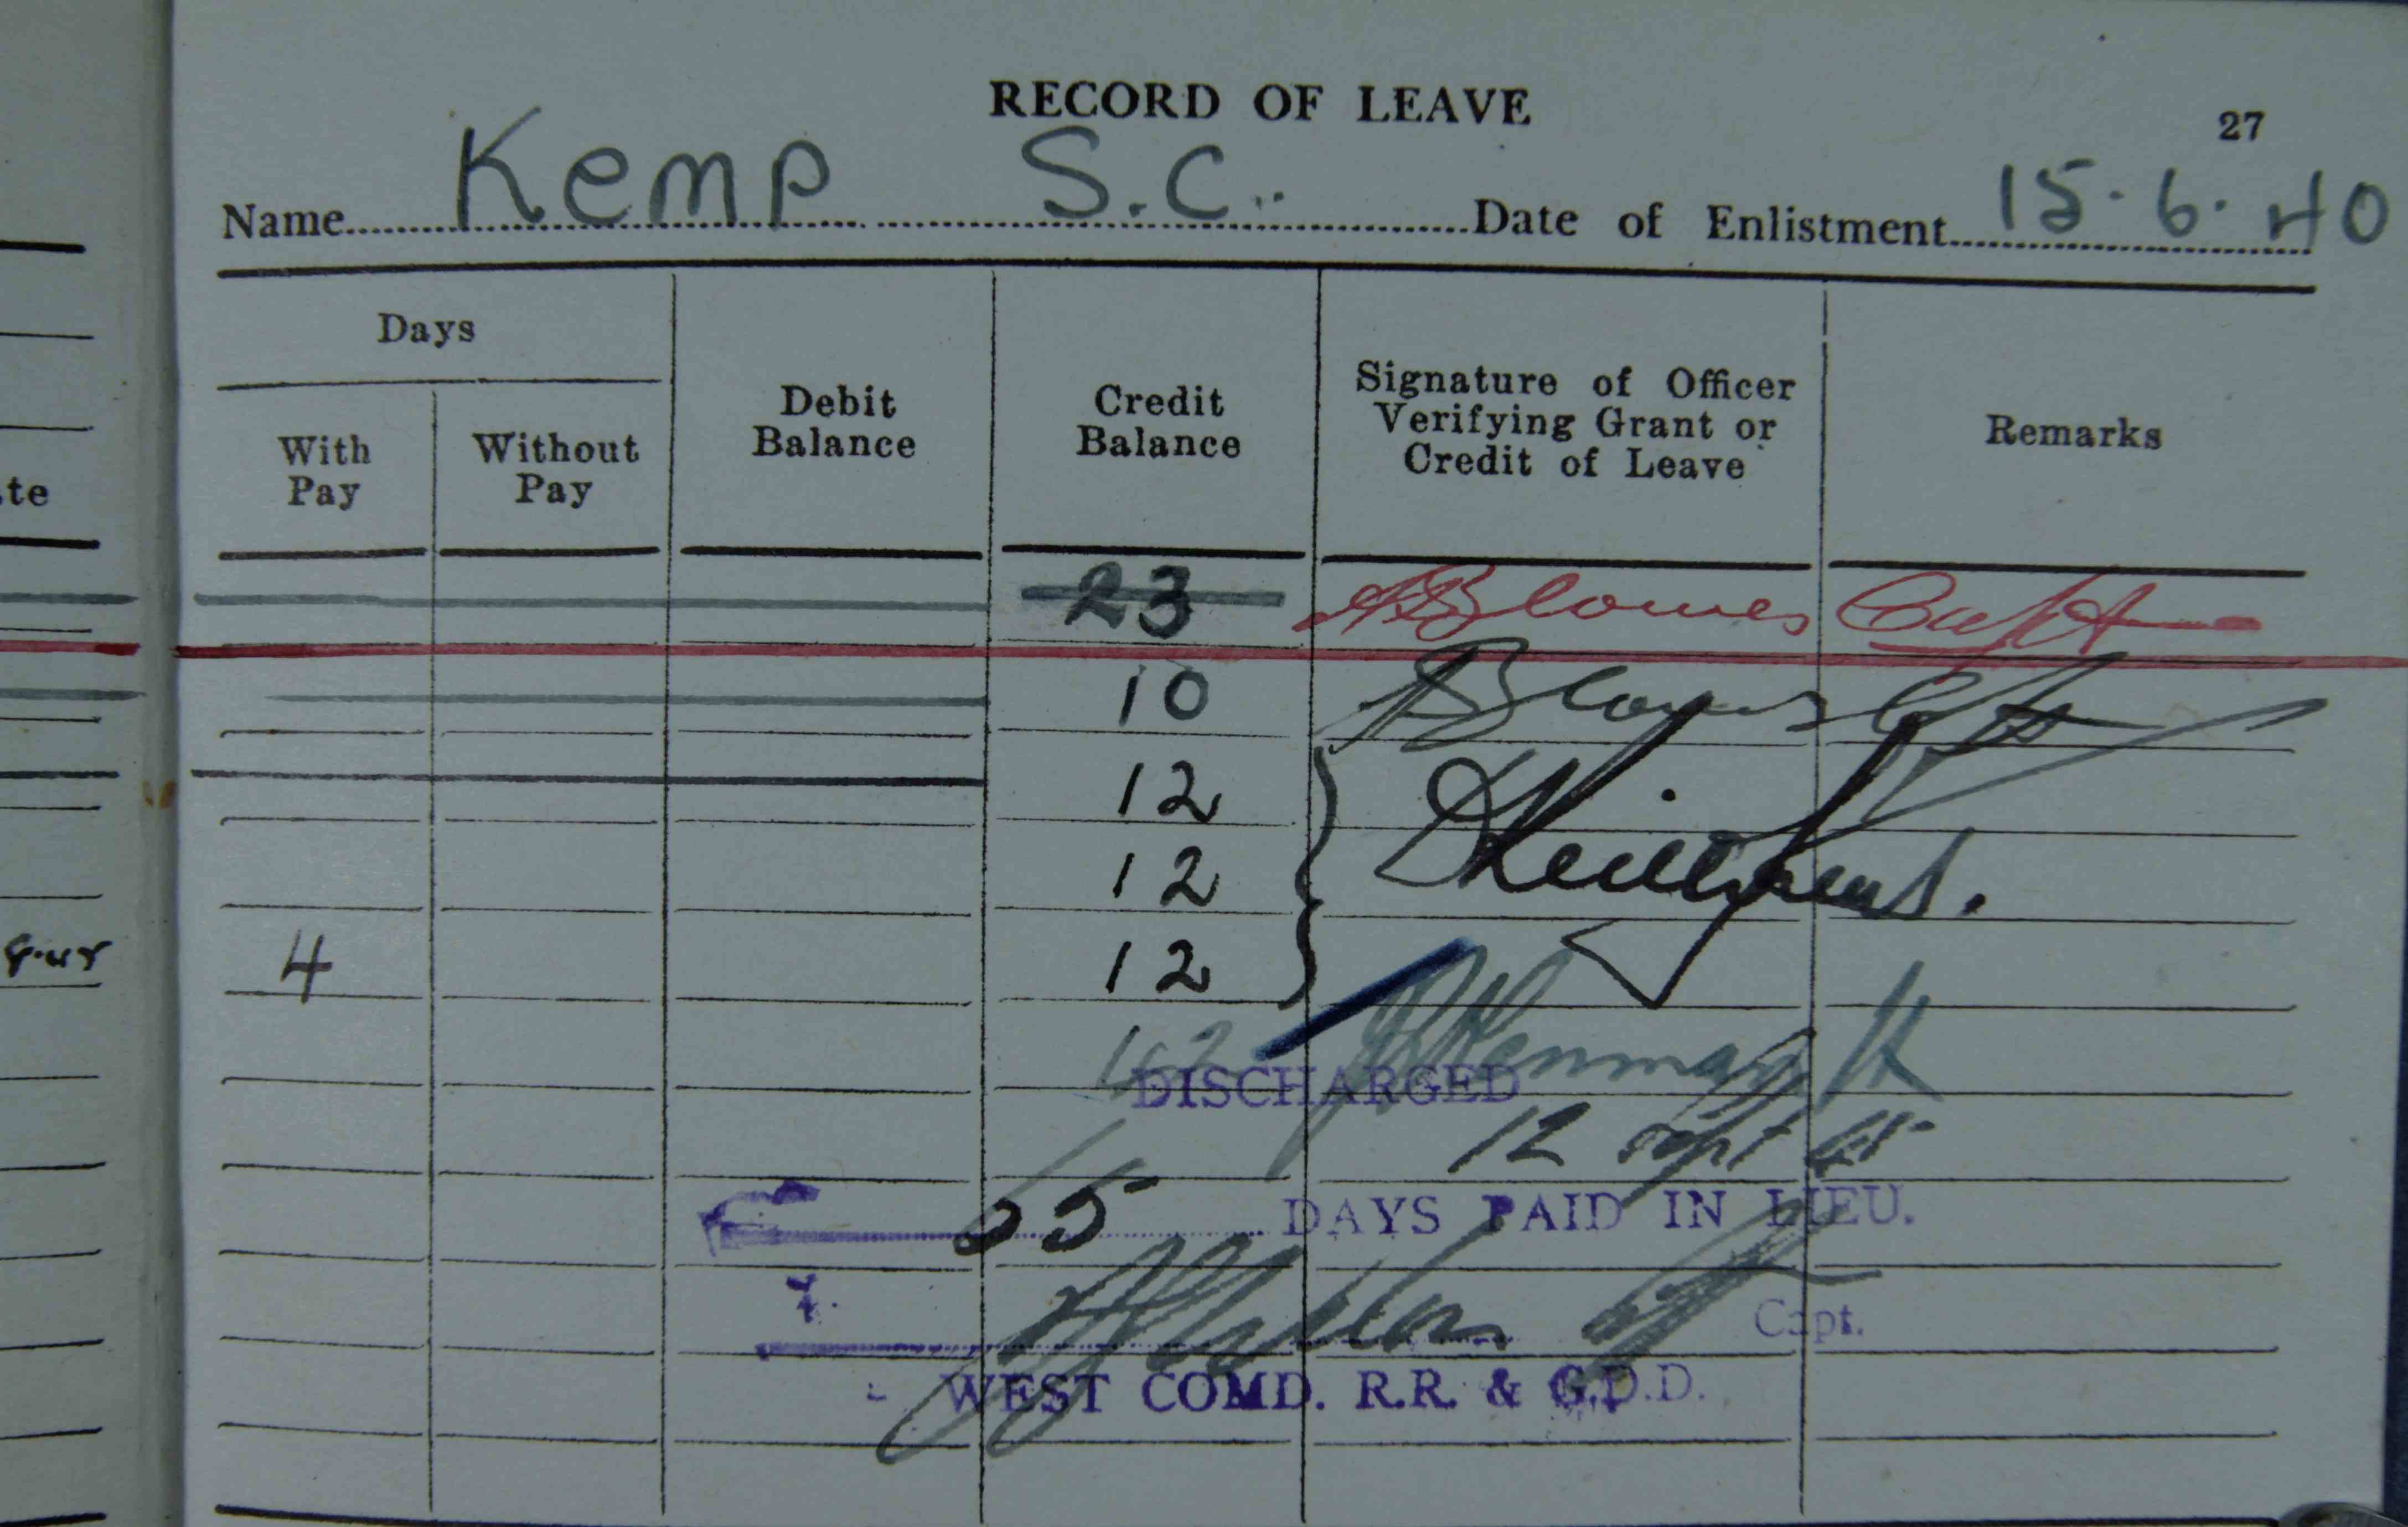 RECORD OF LEAVE
27
Name Kemp S.C. Date of Enlistment 15.6.40
Days
With Pay
Without Pay
Debit Balance
Credit Balance
Signature of Officer Verifying Grant or Credit of Leave
Remarks
te
23 Capt
10
12
12
4 12
DISCHARGED
12 Sept 45
55 DAYS PAID IN LIEU.
Capt.
WEST COMD. R.R. & G.D.D.